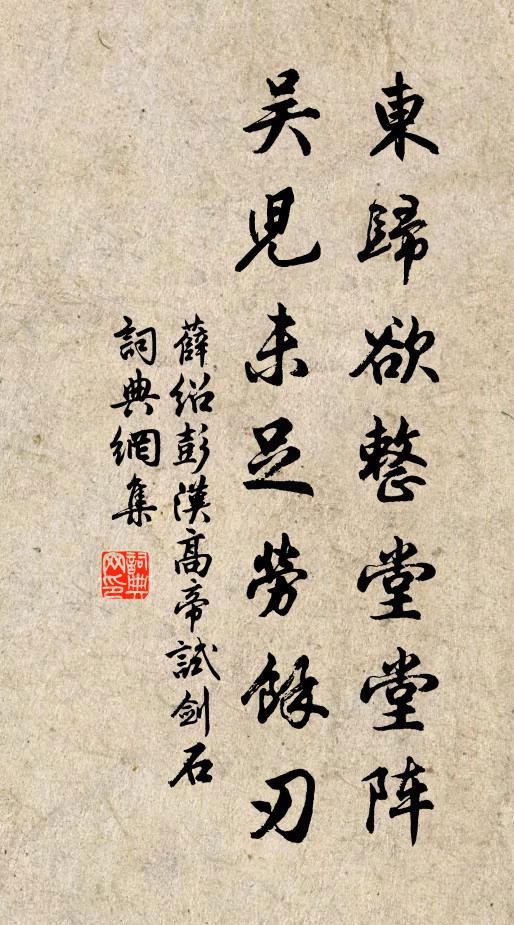 東歸欲整堂堂阵
吴兒未足勞餘刃
薛绍彭漢高帝試劍石
詞典網集
詞典网印